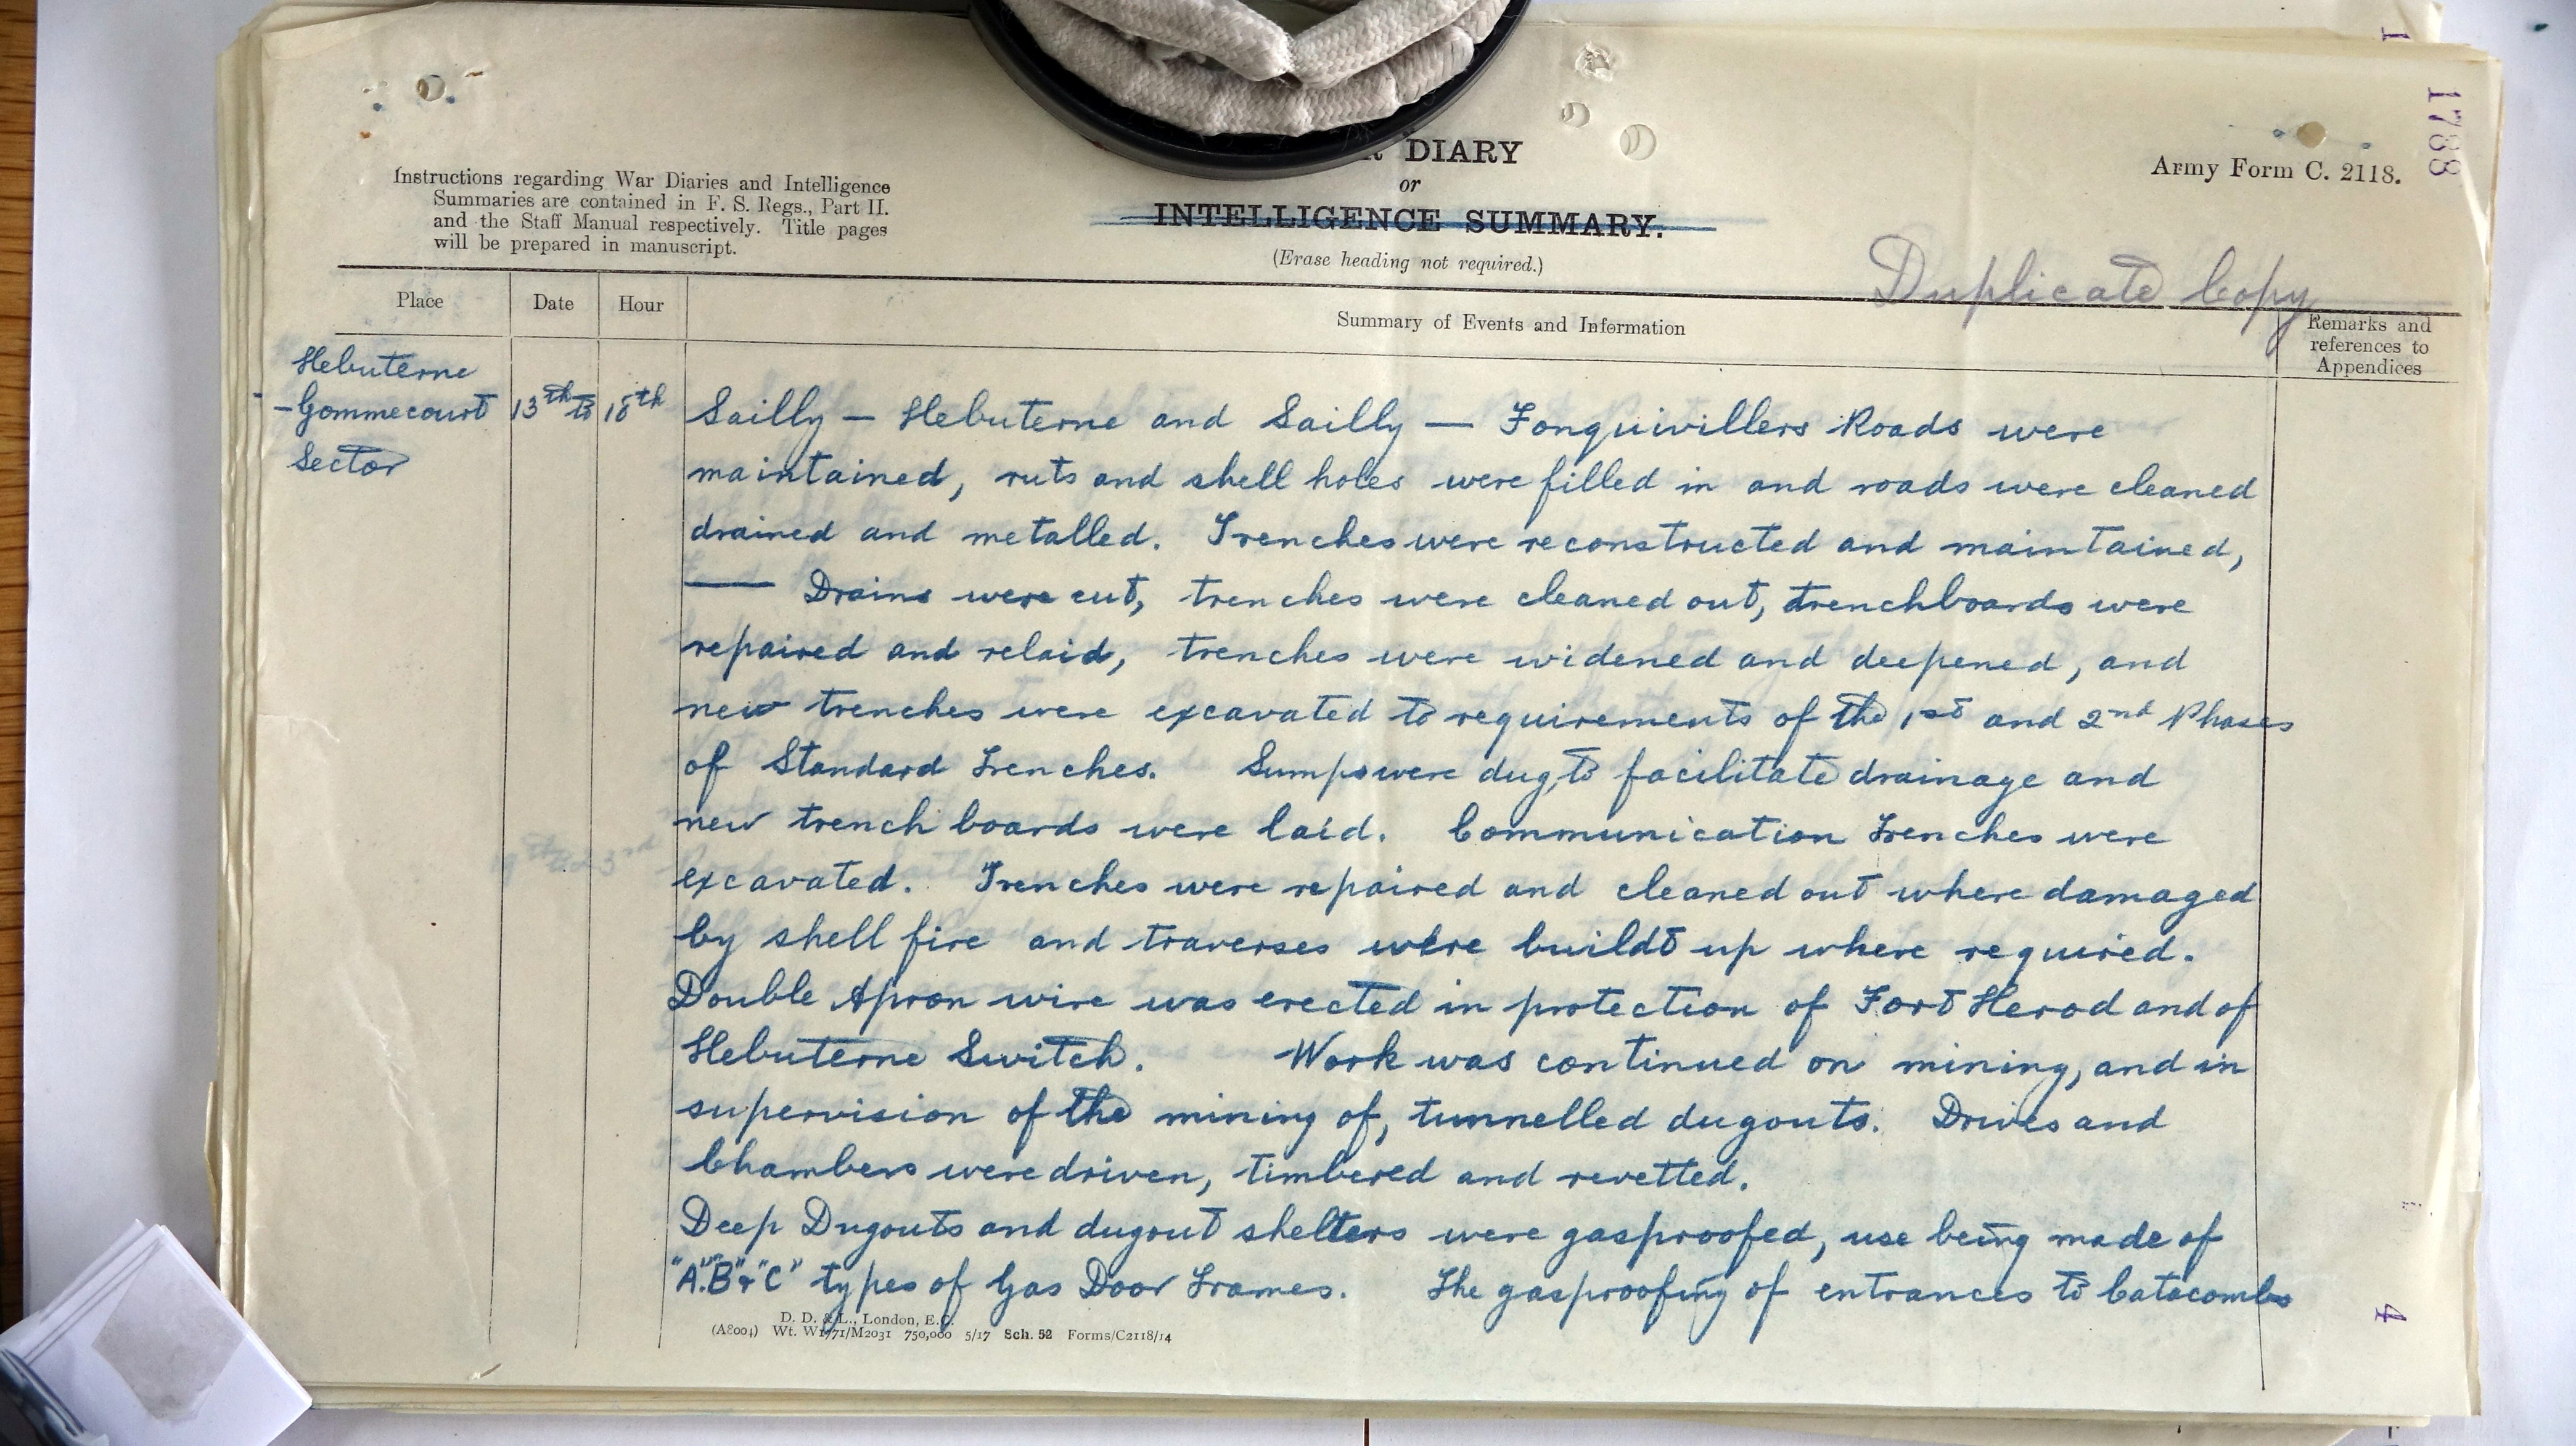 1788
Instructions regarding War Diaries and Intelligence
Summaries are contained in F. S. Regs., Part II.
and the Staff Manual respectively. Title pages
will be prepared in manuscript.
R DIARY
or
INTELLIGENCE SUMMARY.
(Erase heading not required.)
Army Form C. 2118.
Duplicate Copy
Place
Date
Hour
Summary of Events and Information
Remarks and
references to
Appendices
Hebuterne
- Gommecourt
Sector
13th to 18th
Sailly — Hebuterne and Sailly — Fonquivillers Roads were
maintained, ruts and shell holes were filled in and roads were cleaned
drained and metalled. Trenches were reconstructed and maintained,
— Drains were cut, trenches were cleaned out, trenchboards were
repaired and relaid, trenches were widened and deepened, and
new trenches were excavated to requirements of the 1st and 2nd Phases
of Standard Trenches. Sumps were dug, to facilitate drainage and
new trench boards were laid. Communication Trenches were
excavated. Trenches were repaired and cleaned out where damaged
by shell fire and traverses were buildt up where required.
Double Apron wire was erected in protection of Fort Herod and of
Hebuterne Switch. Work was continued on mining, and in
supervision of the mining of, tunnelled dugouts. Drives and
Chambers were driven, timbered and revetted.
Deep Dugouts and dugout shelters were gasproofed, use being made of
"A". "B" + "C" types of Gas Door Frames. The gasproofing of entrances to Catacombs
D. D. & L., London, E.C.
(A8004) Wt. W1771/M2031 750,000 5/17 Sch. 52 Forms/C2118/14
4